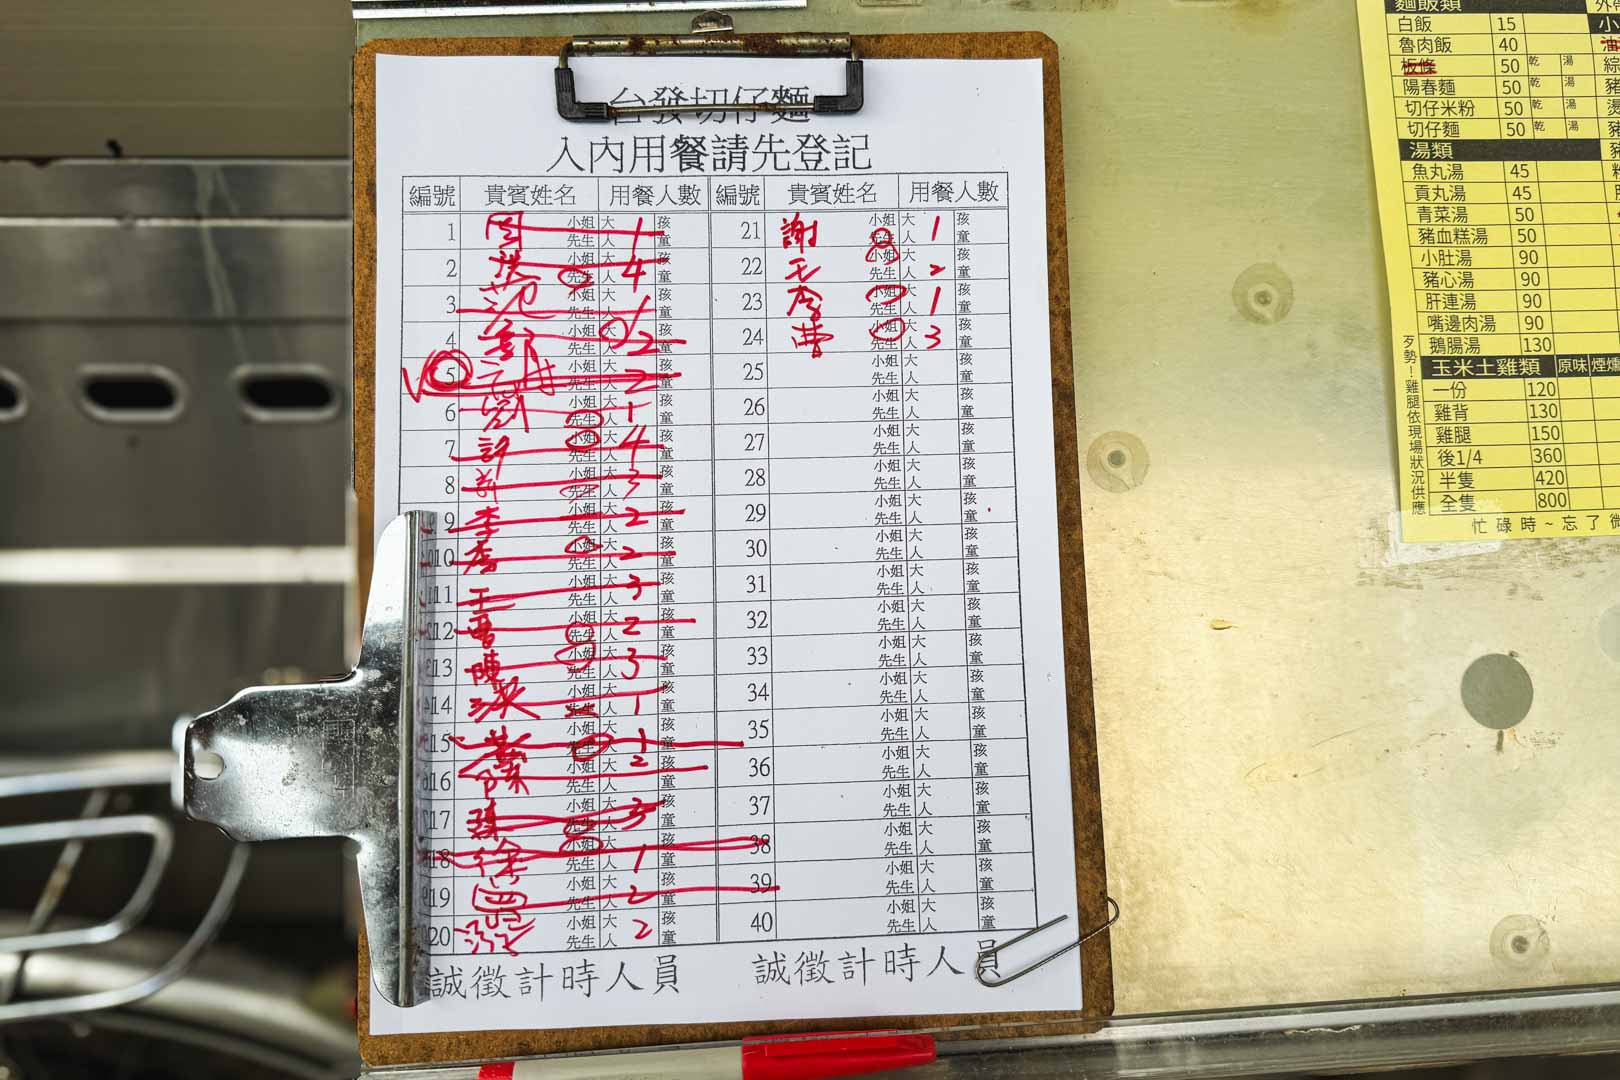 台發切仔麵
入內用餐請先登記
編號 貴賓姓名 用餐人數 編號 貴賓姓名 用餐人數
1 小姐 先生 大人 1 孩童 21 謝 小姐 先生 大人 1 孩童
2 小姐 先生 大人 4 孩童 22 王 小姐 先生 大人 2 孩童
3 范 小姐 先生 大人 1 孩童 23 李 小姐 先生 大人 1 孩童
4 小姐 先生 大人 2 孩童 24 曹 小姐 先生 大人 3 孩童
5 小姐 先生 大人 2 孩童 25 小姐 先生 大人 孩童
6 劉 小姐 先生 大人 1 孩童 26 小姐 先生 大人 孩童
7 許 小姐 先生 大人 4 孩童 27 小姐 先生 大人 孩童
8 小姐 先生 大人 3 孩童 28 小姐 先生 大人 孩童
9 李 小姐 先生 大人 2 孩童 29 小姐 先生 大人 孩童
10 李 小姐 先生 大人 2 孩童 30 小姐 先生 大人 孩童
11 王 小姐 先生 大人 3 孩童 31 小姐 先生 大人 孩童
12 曾 小姐 先生 大人 2 孩童 32 小姐 先生 大人 孩童
13 陳 小姐 先生 大人 3 孩童 33 小姐 先生 大人 孩童
14 洪 小姐 先生 大人 1 孩童 34 小姐 先生 大人 孩童
15 小姐 先生 大人 1 孩童 35 小姐 先生 大人 孩童
16 小姐 先生 大人 2 孩童 36 小姐 先生 大人 孩童
17 陳 小姐 先生 大人 3 孩童 37 小姐 先生 大人 孩童
18 徐 小姐 先生 大人 1 孩童 38 小姐 先生 大人 孩童
19 小姐 先生 大人 2 孩童 39 小姐 先生 大人 孩童
20 小姐 先生 大人 2 孩童 40 小姐 先生 大人 孩童
誠徵計時人員 誠徵計時人員
麵飯類
白飯 15
魯肉飯 40
板條 50 乾 湯
陽春麵 50 乾 湯
切仔米粉 50 乾 湯
切仔麵 50 乾 湯
湯類
魚丸湯 45
貢丸湯 45
青菜湯 50
豬血糕湯 50
小肚湯 90
豬心湯 90
肝連湯 90
嘴邊肉湯 90
鵝腸湯 130
玉米土雞類 原味 煙燻
一份 120
雞背 130
雞腿 150
後1/4 360
半隻 420
全隻 800
歹勢!雞腿依現場狀況供應
忙碌時~忘了